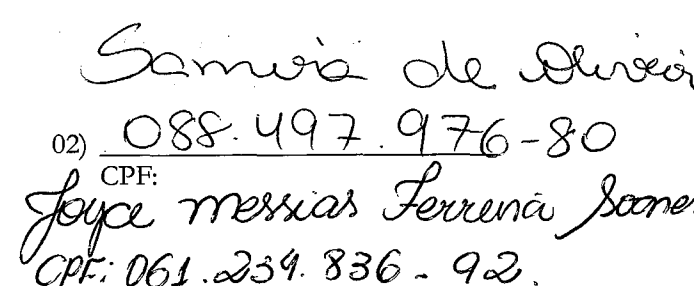 Samira de Oliveira
02) 088.497.976-80
CPF:
Joyce messias Ferreira Soares
CPF: 061.234.836-92.